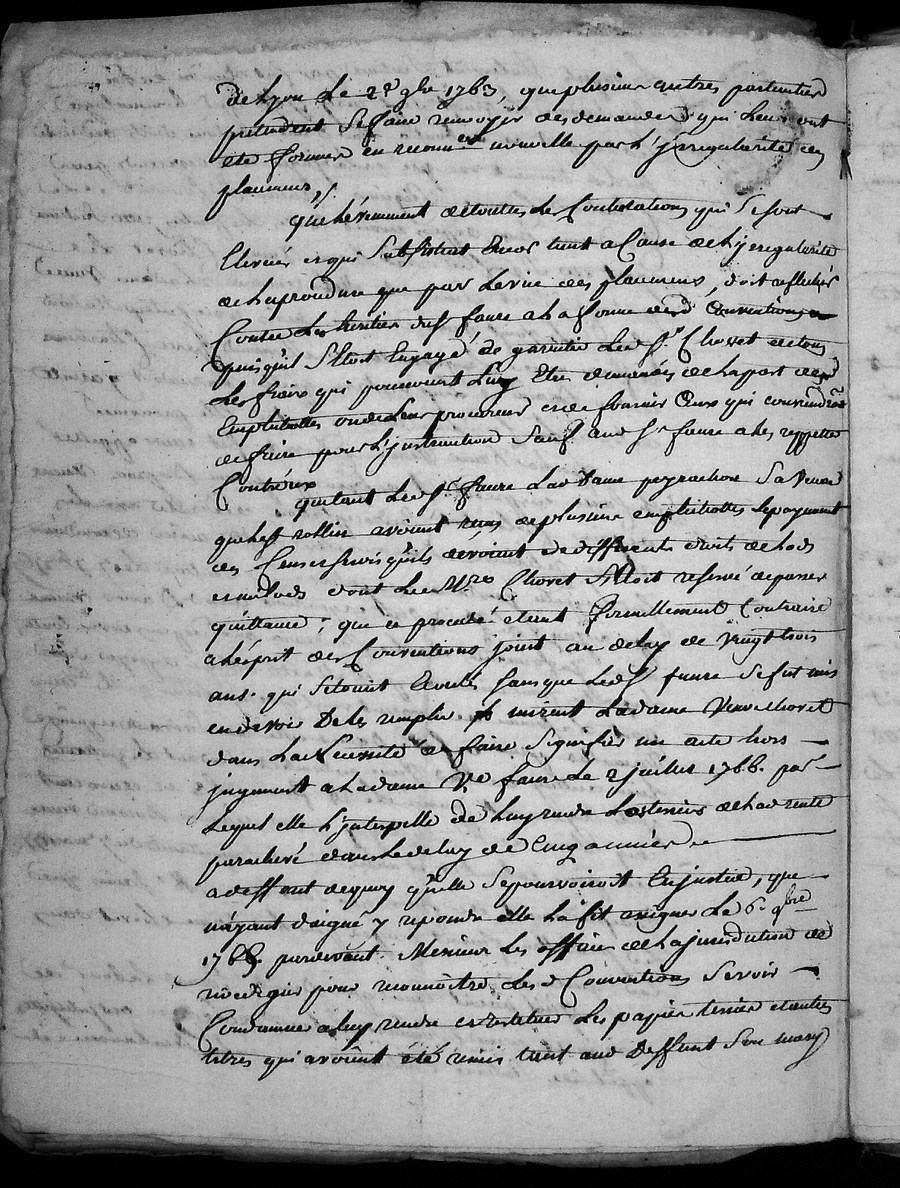 de Lyon Le 22e 9bre 1763, que plusieurs autres particuliers
pretendent se faire renvoyer des demandes qui leurs ont
été formées en reconnce nouvelle par L'jrregularité des
plaumens,
que L'évenement de touttes Les Contestations qui se sont
Elevées et qui subsistent Encor tant a Cause de L'jrregularité
de La procedure que par Le vice des plaumens, doit
Contre Les heritiers du Sr faure a La forme desd Conventions
puisqu'il s'Etoit Engagé de garentir Led Sr Choret de tous
Les fraix qui pourroient Luy Etre demandés de La part des
Emphitéottes ou de Leur procureur et de fournir Ceux qui conviendront
de faire pour L'jnstruction sauf aud Sr faure a Les reppetter
Contr'eux
que tant Led Sr faure Lad Dame peyrachon sa Veuve
que Le Sr rollin avoient reçus de plusieurs emphitéottes Le payement
des Cens et servis qu'ils devoient et de differents droits de Lods
et milods dont Led Mre Choret s'Etoit reservé de passer
quittance; que ce procedé etant formellement Contraire
a L'ésprit des Conventions joint au delay de vingt trois
ans qui s'étoient Ecoulés sans que Led Sr faure se fut mis
en devoir De Les remplir mirent La dame Veuve Choret
dans La Necessité de faire signifier un acte hors
jugement a La dame Ve faure Le 2 juillet 1766. par
Lequel elle L'jnterpella de Luy rendre Les terriers de Lad rente
parachevé dans Le delay de Cinq années
a deffaut de quoy qu'elle se pourvoiroit En justice, que
n'ayant daigné y reponde elle La fit assigner Le 6e 9bre
1766. pardevant Messieurs Les officiers de La jurisdiction de
pour reconnoitre Lesd Conventions se voir
Condamner a Luy rendre et restituer Les papiers terriers et autres
titres qui avoient été remis tant aud Deffunt son mary